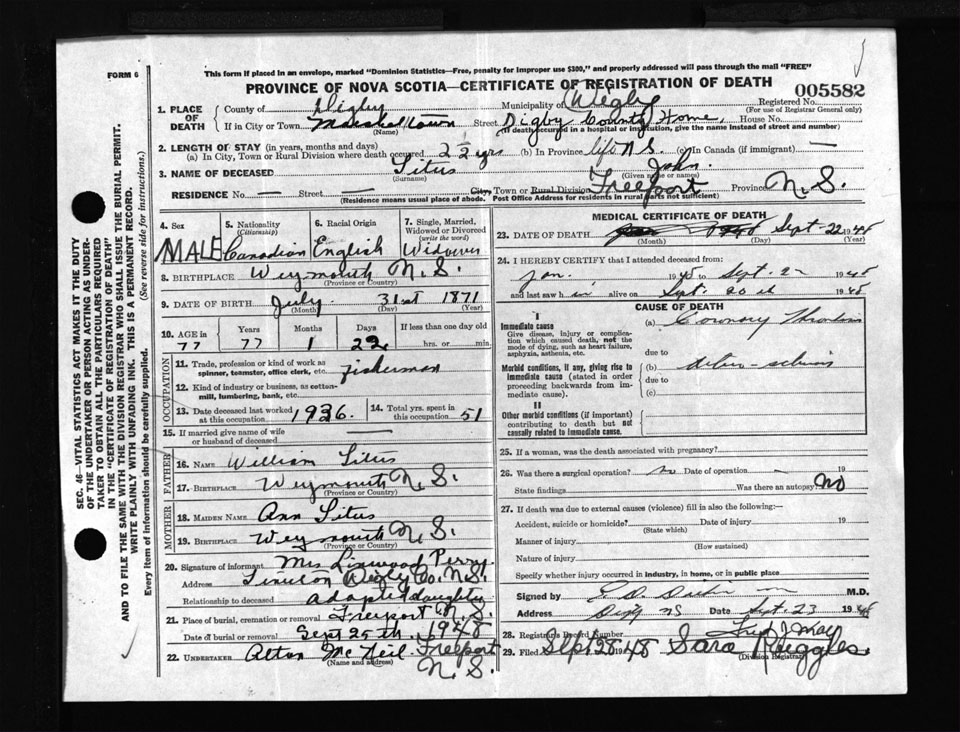 FORM 6
This form if placed in an envelope, marked "Dominion Statistics—Free, penalty for improper use $300," and properly addressed will pass through the mail "FREE"
PROVINCE OF NOVA SCOTIA—CERTIFICATE OF REGISTRATION OF DEATH
005582
1. PLACE OF DEATH
County of Digby Municipality of Digby Registered No.
(For use of Registrar General only)
If in City or Town Marshalltown Street Digby County Home, House No.
(Name) (If death occurred in a hospital or institution, give the name instead of street and number)
2. LENGTH OF STAY (in years, months and days)
(a) In City, Town or Rural Division where death occurred 2 1/2 yrs (b) In Province life N S. (c) In Canada (if immigrant) —
3. NAME OF DECEASED Titus John.
(Surname) (Given name or names)
RESIDENCE No. — Street — City, Town or Rural Division Freeport Province N. S.
(Residence means usual place of abode. Post Office Address for residents in rural parts not sufficient)
4. Sex
MALE
5. Nationality
(Citizenship)
Canadian
6. Racial Origin
English
7. Single, Married, Widowed or Divorced
(write the word)
Widower
8. BIRTHPLACE Weymouth N. S.
(Province or Country)
9. DATE OF BIRTH July 31st 1871
(Month) (Day) (Year)
10. AGE in
77
Years
77
Months
1
Days
22
If less than one day old
hrs. or min.
OCCUPATION
11. Trade, profession or kind of work as spinner, teamster, office clerk, etc. fisherman
12. Kind of industry or business, as cotton-mill, lumbering, bank, etc.
13. Date deceased last worked at this occupation 1936.
14. Total yrs. spent in this occupation 51
15. If married give name of wife or husband of deceased —
FATHER
16. NAME William Titus
17. BIRTHPLACE Weymouth N. S.
(Province or Country)
MOTHER
18. MAIDEN NAME Ann Titus
19. BIRTHPLACE Weymouth N. S.
(Province or Country)
20. Signature of informant Mrs Linwood Perry.
Address Digby Co. N. S.
Relationship to deceased adopted daughter
21. Place of burial, cremation or removal Freeport N. S.
Date of burial or removal Sept 25th, 1948
22. UNDERTAKER Alton McNeil Freeport
(Name and address)
N. S.
MEDICAL CERTIFICATE OF DEATH
23. DATE OF DEATH Sept-22 1948
(Month) (Day) (Year)
24. I HEREBY CERTIFY that I attended deceased from:
Jan. 1948 to Sept. 22 1948
and last saw h im alive on Sept. 20 th 1948
CAUSE OF DEATH
I
Immediate cause
Give disease, injury or complication which caused death, not the mode of dying, such as heart failure, asphyxia, asthenia, etc.
(a) Coronary Thrombosis
due to
Morbid conditions, if any, giving rise to immediate cause (stated in order proceeding backwards from immediate cause).
(b)
due to
(c)
II
Other morbid conditions (if important) contributing to death but not causally related to immediate cause.
25. If a woman, was the death associated with pregnancy?
26. Was there a surgical operation? no Date of operation — 19
State findings Was there an autopsy? NO
27. If death was due to external causes (violence) fill in also the following:—
Accident, suicide or homicide? Date of injury 19
(State which)
Manner of injury
(How sustained)
Nature of injury
Specify whether injury occurred in industry, in home, or in public place
Signed by M.D.
Address Digby NS Date Sept. 23 1948
28. Registrar's Record Number
29. Filed Sept 28 1948 Sara Ruggles
(Division Registrar)
SEC. 46—VITAL STATISTICS ACT MAKES IT THE DUTY
OF THE UNDERTAKER OR PERSON ACTING AS UNDER-
TAKER TO OBTAIN ALL THE PARTICULARS REQUIRED
IN THE "CERTIFICATE OF REGISTRATION OF DEATH"
AND TO FILE THE SAME WITH THE DIVISION REGISTRAR WHO SHALL ISSUE THE BURIAL PERMIT.
WRITE PLAINLY WITH UNFADING INK. THIS IS A PERMANENT RECORD.
Every item of information should be carefully supplied. (See reverse side for instructions.)